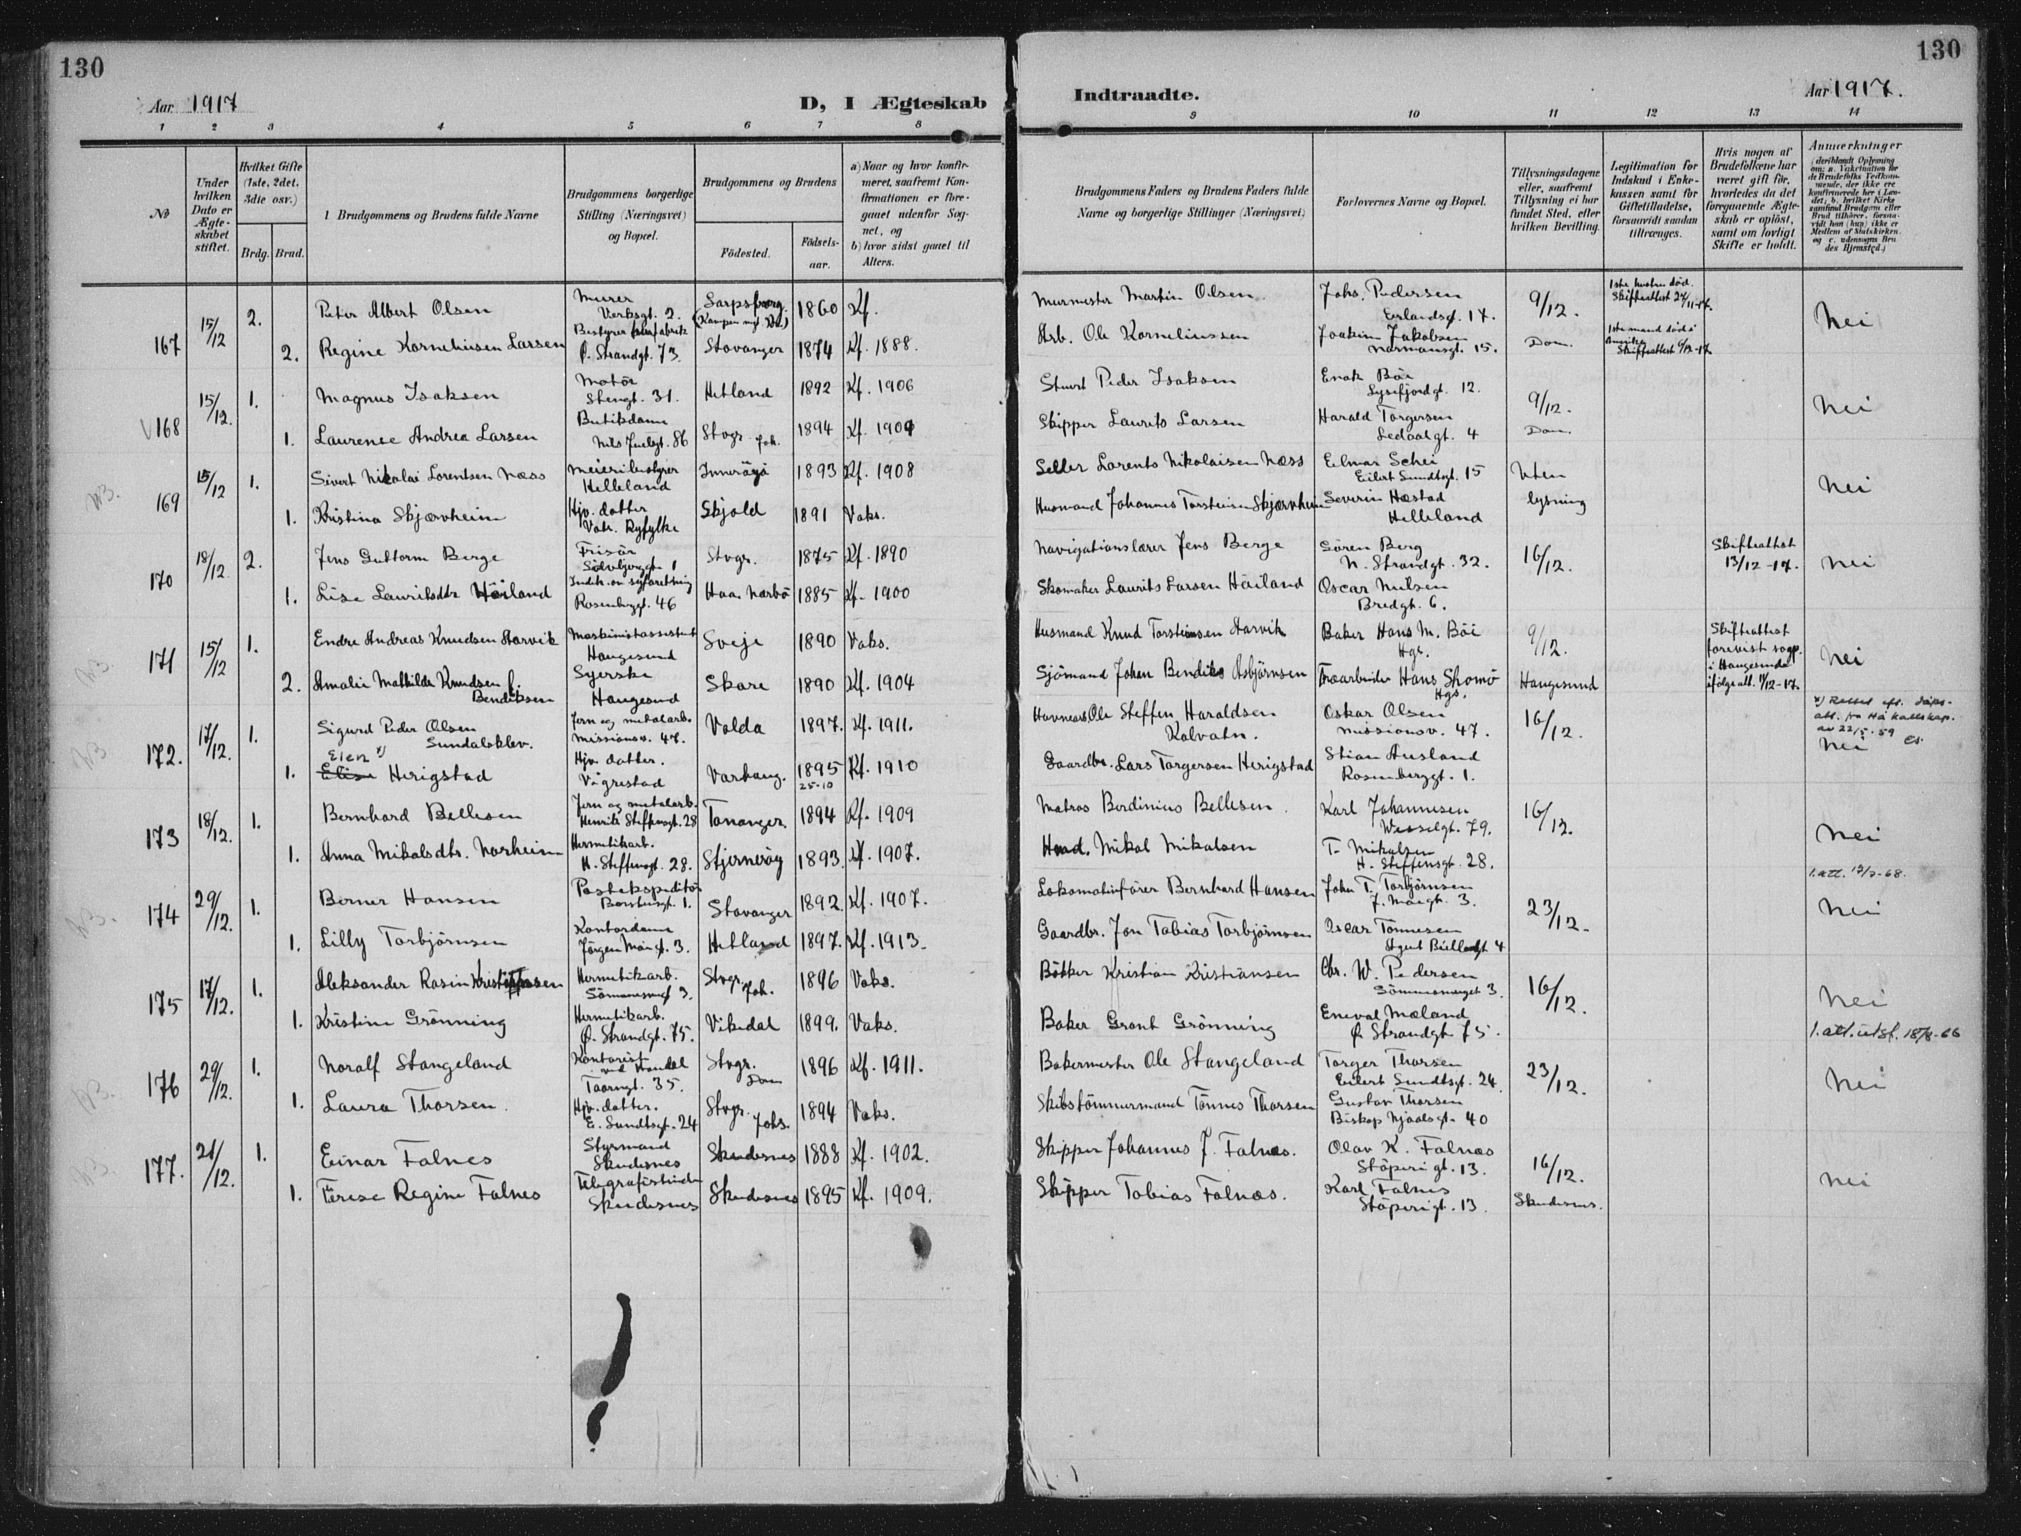 130
130
Aar 1917
D, I Ægteskab
Indtraadte.
Aar 1917.
1 2 3 4 5 6 7 8 9 10 11 12 13 14
№
Under hvilken Dato er Ægteskabet stiftet.
Hvilket Gifte (1ste, 2det, 3die osv.)
Brdg. Brud.
Brudgommens og Brudens fulde Navne
Brudgommens borgerlige Stilling (Næringsvei) og Bopæl.
Brudgommens og Brudens
Födested.
Födselsaar.
a) Naar og hvor konfirmeret, saafremt Konfirmationen er foregaaet udenfor Sognet, og
b) hvor sidst gaaet til Alters.
Brudgommens Faders og Brudens Faders fulde Navne og borgerlige Stillinger (Næringsvei)
Forlovernes Navne og Bopæl.
Tillysningsdagene eller, saafremt Tillysning ei har fundet Sted, efter hvilken Bevilling.
Legitimation for Indskud i Enkekassen samt for Giftetilladelse, forsaavidt saadan tiltrænges.
Hvis nogen af Brudefolkene har været gift før, hvorledes da det foregaaende Ægteskab er opløst, samt om lovligt Skifte er holdt.
Anmerkninger
(deriblandt Oplysning om: a. Vakcination for de Brudefolks Vedkommende, der ikke ere konfirmerede her i Landet; b. hvilket Kirkesamfund Brudgom eller Brud tilhører, forsaavidt han (hun) ikke er Medlem af Statskirken, og c. udensogns Brudes Hjemsted.)
167 15/12 2. Peter Albert Olsen Murer Verksgt. 2. Sarpsborg 1860 Kf. Murmester Martin Olsen Johs. Pedersen Erlandsgt. 17. 9/12. 1ste hustru död. Skifteattest 24/11-17. Nei
2. Regine Korneliusen Larsen Ø. Strandgt. 73. Stavanger 1874 Kf. 1888. Arb. Ole Korneliussen Joakim Jakobsen Normansgt. 15. Dom. 1ste mand död i Amerika Skifteattest 6/12-17.
168 15/12. 1. Magnus Isaksen Stengt. 31. Hetland 1892 Kf. 1906 Stuert Peder Isaksen Enok Böe Lysefjordgt. 12. 9/12. Nei
1. Laurense Andrea Larsen Butikdame Nils Juelsgt. 86 Stvgr. Joh. 1894 Kf. 1909 Skipper Laurits Larsen Harald Torgersen Ledaalgt. 4 Dom.
169 15/12 1. Sivert Nikolai Lorentsen Næss Meieribestyrer Helleland 1893 Kf. 1908 Selveier Lorents Nikolaisen Næss Eilert Sundtsgt. 15 Uten lysning Nei
1. Kristina Skjærvheim Hjv. datter Vats. Ryfylke Skjold 1891 Vaks. Husmand Johannes Torsteinsen Skjærvheim Severin Hæstad Helleland
170 18/12 2. Jens Guttorm Berge Frisör Stvgr. 1875 Kf. 1890 Navigationslærer Jens Berge Sören Berg N. Strandgt. 32. 16/12. Skifteattest 13/12-17. Nei
1. Lise Lauritsdtr Håiland Rosenbergt. 46 Haa. Nærbö 1885 Kf. 1900 Skomaker Laurits Larsen Håiland Oscar Nilsen Bredgt. 6.
171 15/12 1. Endre Andreas Knudsen Aarvik Maskinistassistent Haugesund Sveje 1890 Vaks. Husmand Knud Torsteinsen Aarvik Baker Hans M. Böe Hgs. 9/12. Skifteattest forevist sogp. i Haugesund ifölge att. 11/12-17. Nei
2. Amalie Mathilde Knudsen f. Bendiksen Syerske Haugesund Skare 1890 Kf. 1904 Sjömand Johan Bendiks Asbjörnsen Træarbeider Hans Skomö Hgs. Haugesund
172. 17/12. 1. Sigurd Peder Olsen Sundalsklev. Jern og metalarb. Missionsv. 47. Volda 1897. Kf. 1911. Ole Steffen Haraldsen Kalvatn. Oskar Olsen Missionsv. 47. 16/12. x) Rettet eft. dåps-att. fra Hå kallskap. av 22/5-59 Nei
Elen x) 1. Elise Herigstad Hjv. datter. Vigrestad Varhaug. 1895 25-10 Kf. 1910 Gaardbr. Lars Torgersen Herigstad Stian Ausland Rosenberggt. 1.
173 18/12. 1. Bernhard Bellesen Jern og metalarb. Henrik Steffensgt. 28 Tananger. 1894 Kf. 1909 Matros Berdinius Bellesen Karl Johannesen Wesselgt. 79. 16/12. Nei
1. Anna Mikalsdtr. Norheim Hermetikarb. H. Steffensgt. 28. Stjernerøy 1893. Kf. 1907. Mikal Mikalsen T. Mikalsen H. Steffensgt. 28.
1. att. 12/3-68.
174 29/12. 1. Berner Hansen Postekspeditör Stavanger 1892. Kf. 1907. Lokomotivförer Bernhard Hansen John T. Torbjörnsen J. Moegt. 3. 23/12. Nei
1. Lilly Torbjörnsen Kontordame Jörgen Moegt. 3. Hetland 1897. Kf. 1913. Gaardbr. Jon Tobias Torbjörnsen Oscar Tönnesen 4
175 17/12. 1. Aleksander Rasin Kristiansen Hermetikarb. 3. Stvgr. Joh. 1896 Vaks. Bökker Kristian Kristiansen Chr. W. Pedersen 3. 16/12. Nei
1. Kristine Grönning Hermetikarb. Ø. Strandgt. 75. Vikedal 1899. Vaks. Baker Grant Grönning Eneval Mæland Ø. Strandgt 75. 1. att. utst. 18/8-66
176 29/12. 1. Noralf Stangeland Kontorist Taarngt. 35. Stvgr. Dom 1896 Kf. 1911. Bakermester Ole Stangeland Torger Thorsen Eilert Sundtsgt. 24. 23/12. Nei
1. Laura Thorsen. Hjv. datter. E. Sundtsgt. 24 Stvgr. Johs. 1894 Vaks. Skibstömmermand Tönnes Thorsen Gustav Thorsen Biskop Njaalsgt. 40
177. 21/12. 1. Einar Falnes Styrmand Skudesnes Skudesnes 1888 Kf. 1902. Skipper Johannes J. Falnæs. Olav K. Falnæs Stöperigt. 13. 16/12. Nei
1. Terese Regine Falnes Telegrafistinde Skudesnes Skudesnes 1895 Kf. 1909. Skipper Tobias Falnæs. Karl Falnes Stöperigt. 13. Skudesnes.